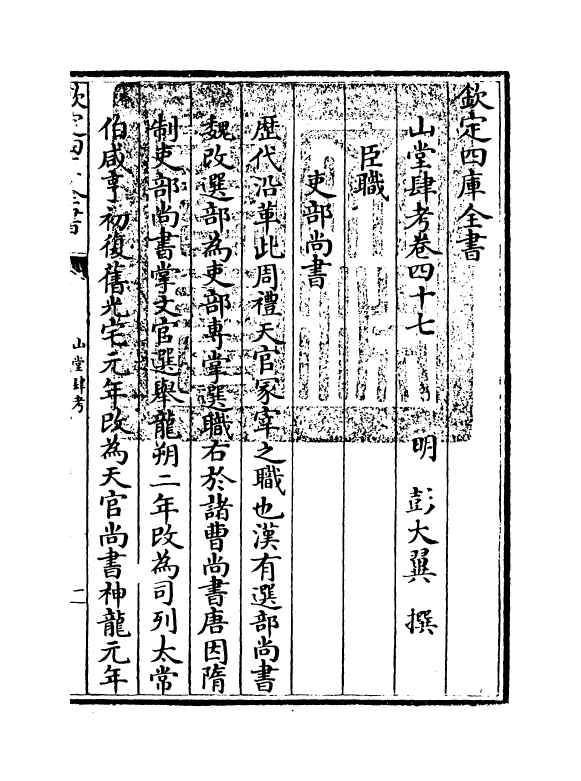 欽定四庫全書
山堂肆考卷四十七　明　彭大翼　撰
臣職
吏部尚書
歴代沿革此周禮天官冢宰之職也漢有選部尚書
魏改選部為吏部專掌選職右於諸曹尚書唐因隋
制吏部尚書掌文官選舉龍朔二年改為司列太常
伯咸亨初復舊光宅元年改為天官尚書神龍元年
欽定四庫全書
山堂肆考